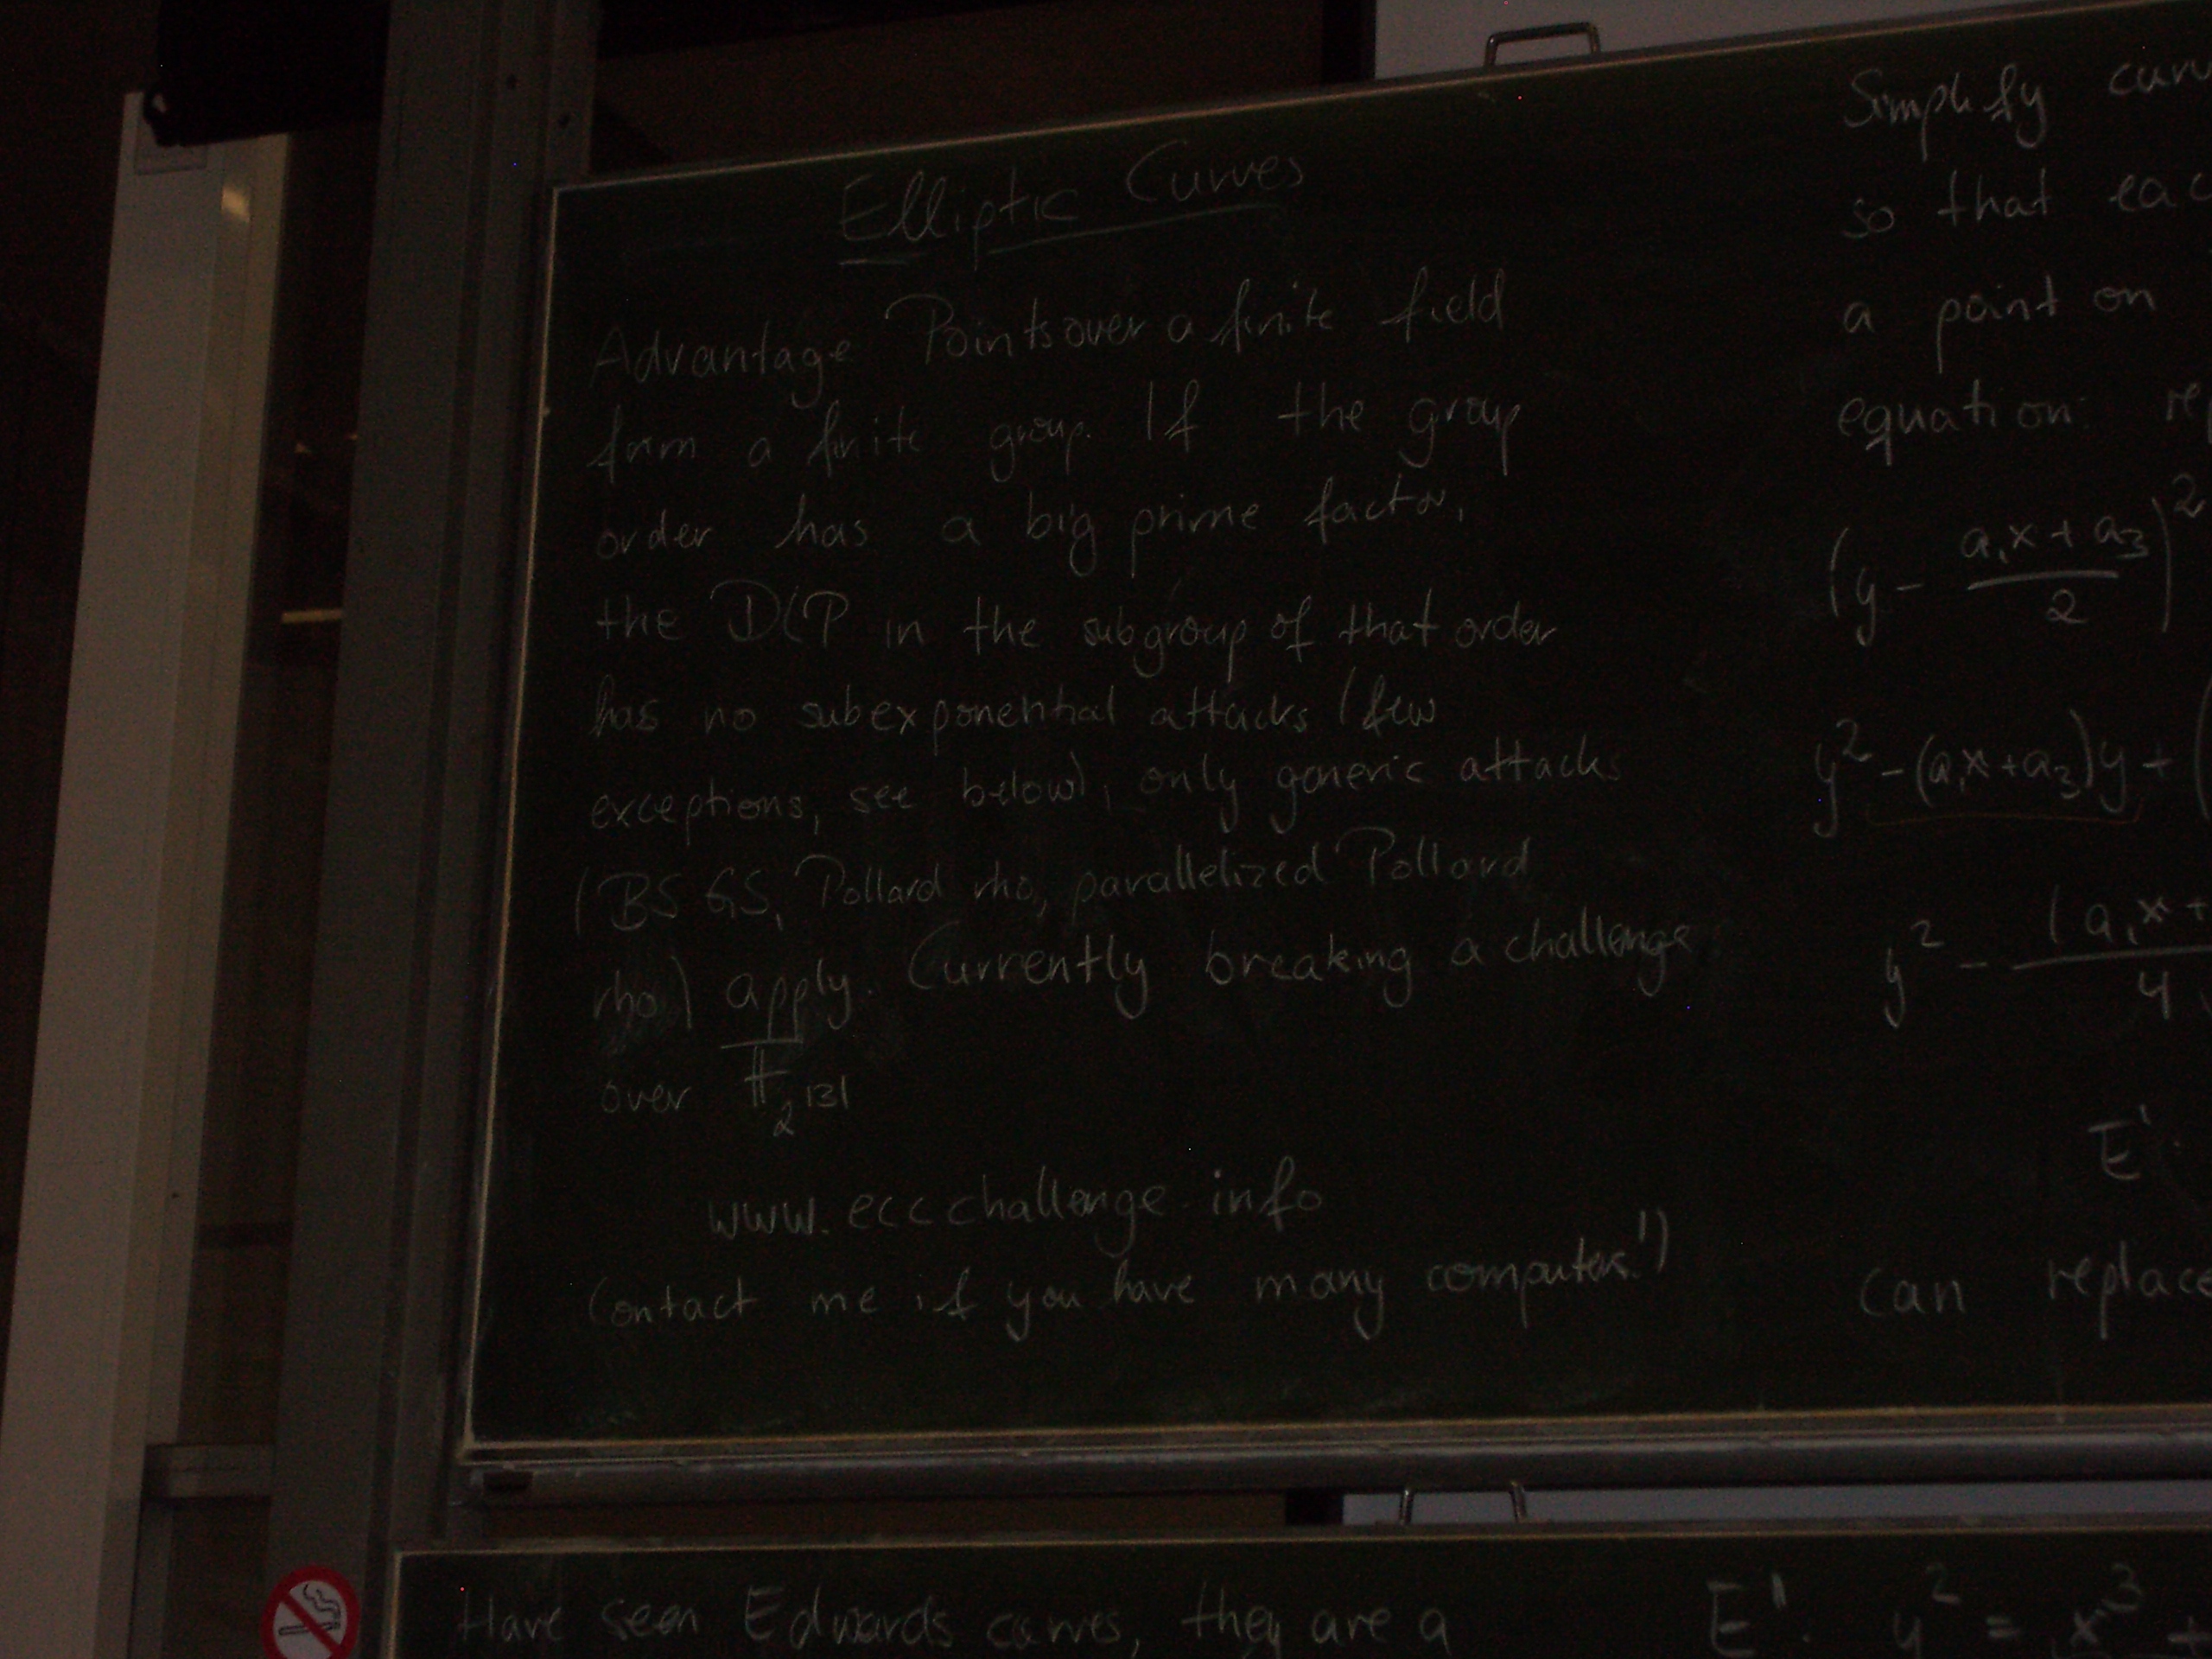 Elliptic Curves
Advantage Points over a finite field
form a finite group. If the group
order has a big prime factor,
the DLP in the subgroup of that order
has no subexponential attacks (few
exceptions, see below), only generic attacks
(BSGS, Pollard rho, parallelized Pollard
rho) apply. Currently breaking a challenge
over 𝔽_2^131
www.eccchallenge.info
(ontact me if you have many computers!)
Simplify curv
so that eac
a point on
equation: re
(y - (a₁x + a₃)/2)²
y² - (a₁x + a₃)y + (
y² - (a₁x + /4
E':
can replace
Have seen Edwards curves, they are a
E': y² = x³ +